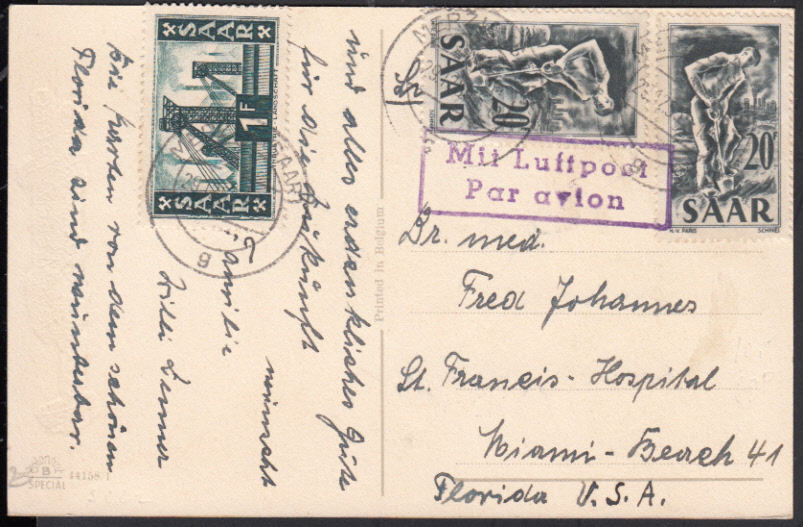 SAAR
1F
INDUSTRIE-LANDSCHAFT
SAAR
SAAR
20F
SAAR
H.V. PARIS
SCHINEI
Mit Luftpost
Par avion
und alles erdenkliches Gute
für die Zukunft
wünscht
Willi
Die Karten von dem schönen
Florida sind wunderbar.
Printed in Belgium
Dr. med.
Fred Johannes
St. Francis-Hospital
Miami-Beach 41
Florida U.S.A.
SPECIAL